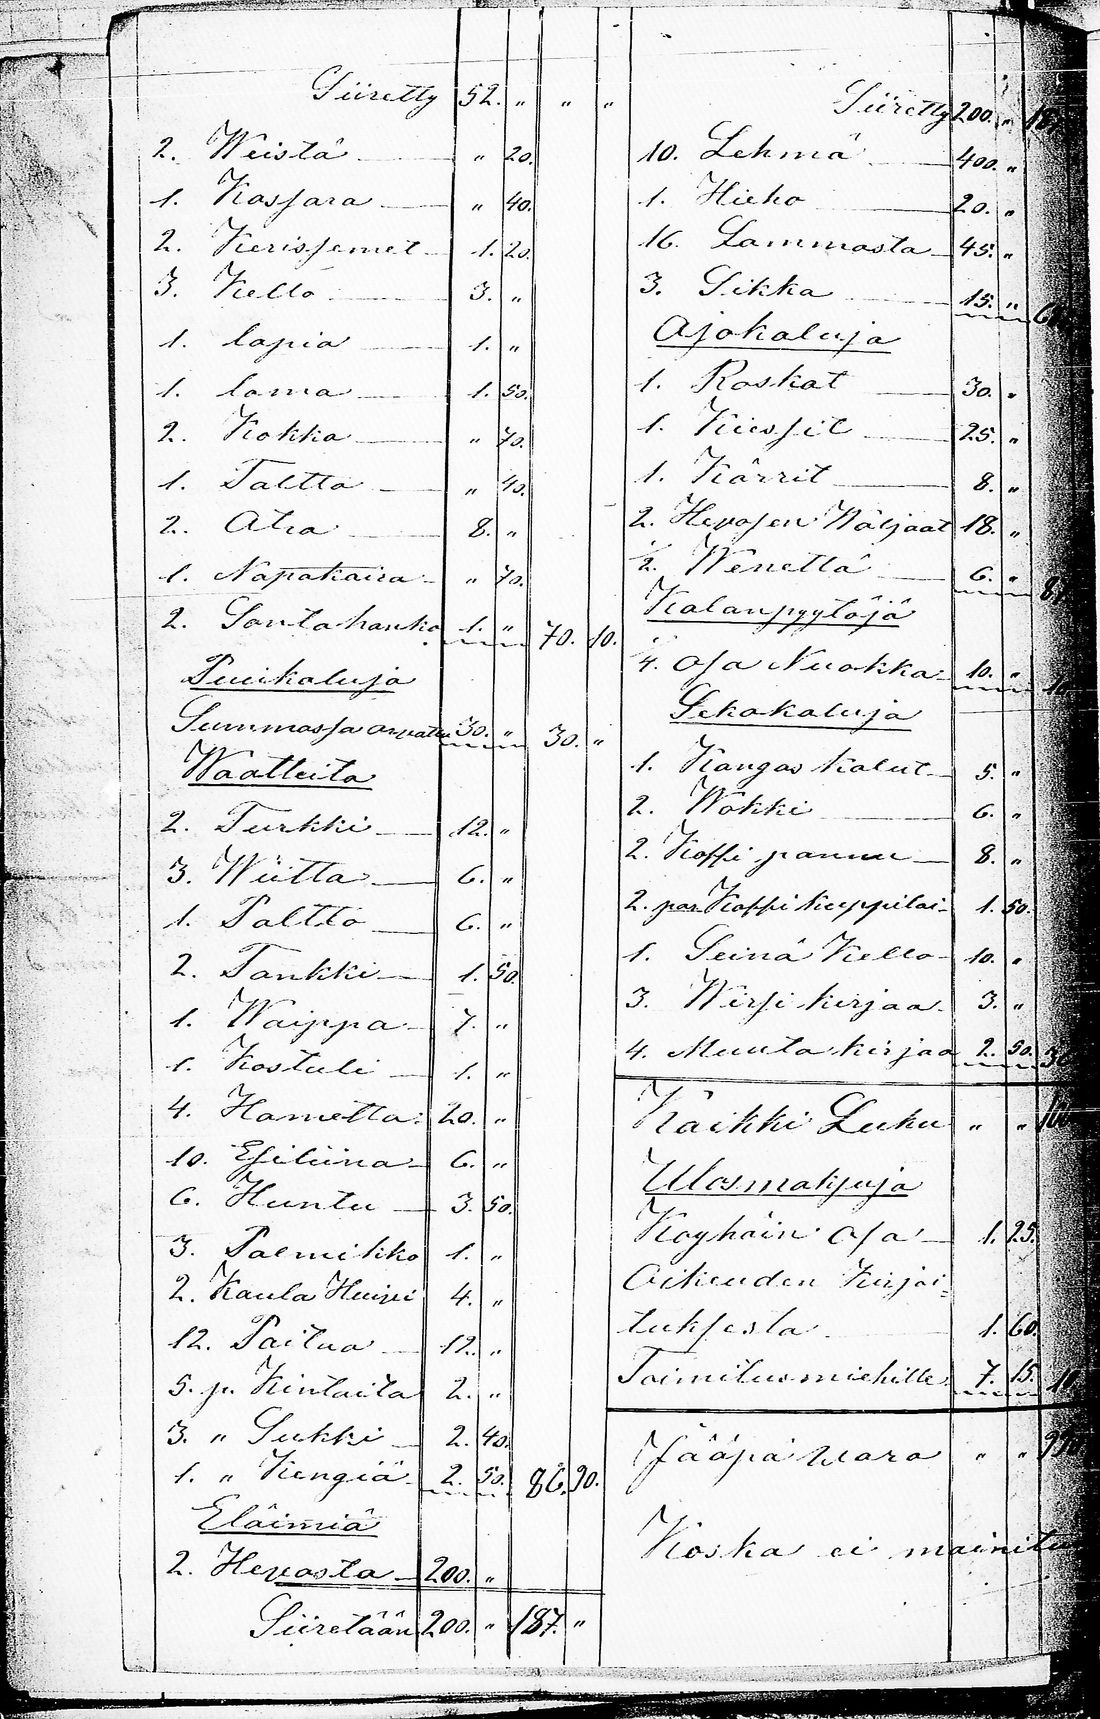 Siiretty 52. " " "
2. Weistä " 20.
1. Kassara " 40.
2. Kerissemet 1. 20.
3. Kello 3. "
1. lapia 1. "
1. lana 1. 50.
2. Kokka " 70.
1. Taltta " 40.
2. Atra 8. "
1. Napakaira " 70.
2. Santa hanko 1. " 70. 10.
Puukaluja
Summassa arvattu 30. " 30. "
Waatteita
2. Turkki 12. "
3. Wiitta 6. "
1. Paltto 6. "
2. Tankki 1. 50.
1. Waippa 7. "
1. Kostuli 1. "
4. Hametta 20. "
10. Esiliina 6. "
6. Huntu 3. 50.
3. Palmikko 1. "
2. Kaula Huivi 4. "
12. Paitaa 12. "
5. p. Kintaita 2. "
3. " Sukki 2. 40.
1. " Kengiä 2. 50. 86. 90.
Eläimiä
2. Hevosta 200. "
Siiretään 200. " 187. "
Siiretty 200. " 187
10. Lehmä 400. "
1. Hieho 20. "
16. Lammasta 45. "
3. Sikka 15. "
Ajokaluja
1. Raskat 30. "
1. Kiessit 25. "
1. Kärrit 8. "
2. Hevosen Wäljaat 18. "
1/2. Wenettä 6. " 87
Kalanpyytöjä
1/4. osa Nuokka 10. " 10
Sekakaluja
1. Kangas kalut 5. "
2. Wokki 6. "
2. Koffi pannu 8. "
2. par Koffi kuppiloi 1. 50.
1. Seinä Kello 10. "
3. Wirsi kirjaa 3. "
4. Muuta kirjaa 2. 50. 36
Kaikki Luku " "
Ulosmaksuja
Köyhäin osa 1. 25.
Oikeuden Kirjoi=
tuksesta 1. 60.
Toimitusmiehille 7. 15. 10
Jääpä wara " "
Koska ei mainitu